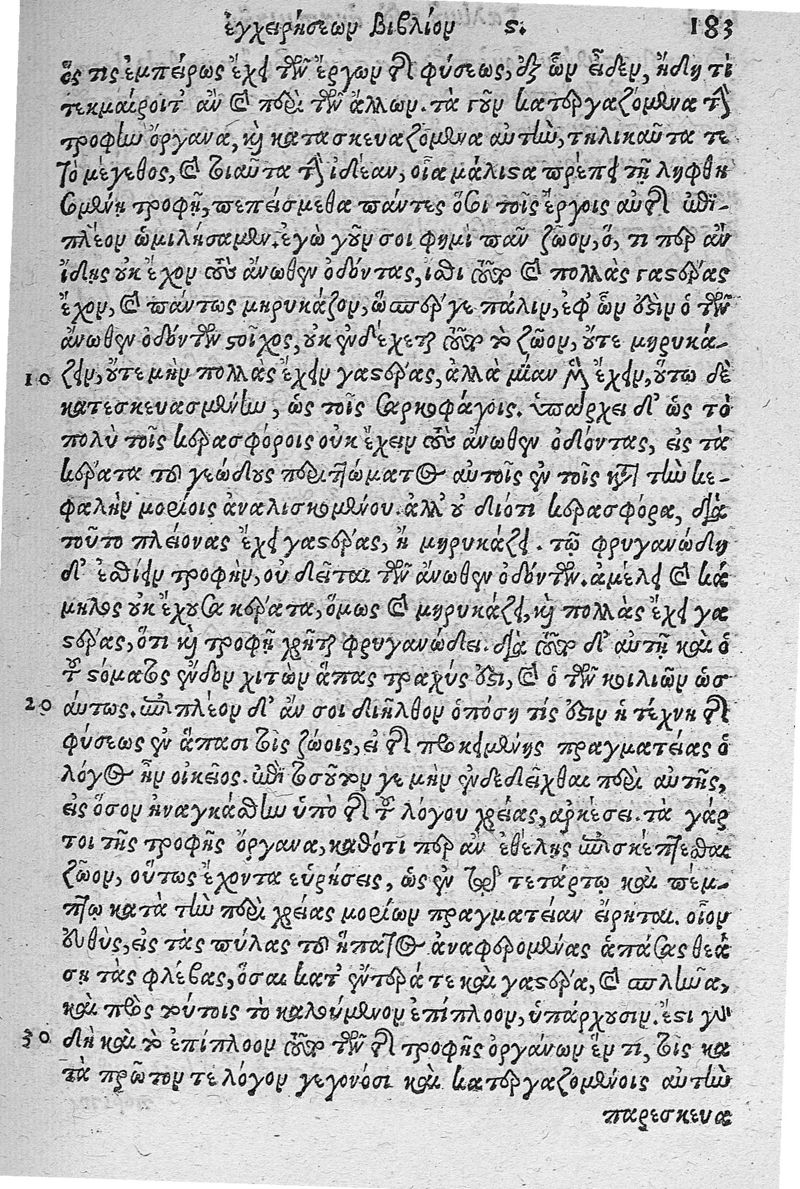 ἐγχειρήσεων βιβλίον ϛ. 183
ὅς τις ἐμπείρως ἔχει τῶν ἔργων τῆς φύσεως, ἐξ ὧν εἶδεν, ἤδη τὶ
τεκμαίροιτ' ἂν καὶ περὶ τῶν ἄλλων. τὰ γοῦν κατεργαζόμενα τὴν
τροφὴν ὄργανα, καὶ κατασκευαζόμενα αὐτὴν, τηλικαῦτα τε
τὸ μέγεθος, καὶ τοιαῦτα τὴν ἰδέαν, οἷα μάλιστα πρέπει τῇ ληφθη
σομένῃ τροφῇ, πεπείσμεθα πάντες ὅσοι τοῖς ἔργοις αὐτῆς ἐπὶ-
πλέον ὡμιλήσαμεν. ἐγὼ γοῦν σοι φημὶ πᾶν ζῶον, ὅ, τι περ ἂν
ἴδῃς οὐκ ἔχον τοὺς ἄνωθεν ὀδόντας, ἴσθι τοῦτο καὶ πολλὰς γαστέρας
ἔχον, καὶ πάντως μηρυκάζον, ὥσπερ γε πάλιν, ἐφ' ὧν ἐστὶν ὁ τῶν
ἄνωθεν ὀδόντων στοῖχος, οὐκ ἐνδέχεται τοῦτο τὸ ζῶον, οὔτε μηρυκά-
10 ζειν, οὔτε μὴν πολλὰς ἔχειν γαστέρας, ἀλλὰ μίαν μὲν ἔχειν, οὕτω δὲ
κατεσκευασμένην, ὡς τοῖς σαρκοφάγοις. ὑπάρχει δ' ὡς τὸ
πολὺ τοῖς κερασφόροις οὐκ ἔχειν τοὺς ἄνωθεν ὀδόντας, εἰς τὰ
κέρατα τοῦ γεώδους περιττώματος αὐτοῖς ἐν τοῖς κατὰ τὴν κε-
φαλὴν μορίοις ἀναλισκομένου. ἀλλ' οὐ διότι κερασφόρα, διὰ
τοῦτο πλείονας ἔχει γαστέρας, ἢ μηρυκάζει. τῷ φρυγανώδη
δ' ἐσθίειν τροφὴν, οὐ δεῖται τῶν ἄνωθεν ὀδόντων. ἀμέλει καὶ κά
μηλος οὐκ ἔχουσα κέρατα, ὅμως καὶ μηρυκάζει, καὶ πολλὰς ἔχει γα
στέρας, ὅτι καὶ τροφῇ χρῆται φρυγανώδει. διὰ τοῦτο δ' αὐτῇ καὶ ὁ
τοῦ στόματος ἔνδον χιτὼν ἅπας τραχύς ἐστι, καὶ ὁ τῶν κοιλιῶν ὡσ
20 αύτως. ἐπιπλέον δ' ἄν σοι διῆλθον ὁπόση τίς ἐστιν ἡ τέχνη τῆς
φύσεως ἐν ἅπασι τοῖς ζώοις, εἰ τῆς προκειμένης πραγματείας ὁ
λόγος ἦν οἰκεῖος. ἐπὶ τοσοῦτον γε μὴν ἐνδεδεῖχθαι περὶ αὐτῆς,
εἰς ὅσον ἠναγκάσθην ὑπὸ τῆς τοῦ λόγου χρείας, ἀρκέσει. τὰ γάρ
τοι τῆς τροφῆς ὄργανα, καθότι περ ἂν ἐθέλῃς ἐπισκέπτεσθαι
ζῶον, οὕτως ἔχοντα εὑρήσεις, ὡς ἐν τῷ τετάρτῳ καὶ πέμ-
πτῳ κατὰ τὴν περὶ χρείας μορίων πραγματείαν εἴρηται. οἷον
εὐθὺς, εἰς τὰς πύλας τοῦ ἥπατος ἀναφερομένας ἁπάσας θεά
σῃ τὰς φλέβας, ὅσαι κατ' ἔντερά τε καὶ γαστέρα, καὶ σπλῆνα,
καὶ πρὸς τούτοις τὸ καλούμενον ἐπίπλοον, ὑπάρχουσιν. ἔστι γὰρ
30 δὴ καὶ τὸ ἐπίπλοον τοῦτο τῶν τῆς τροφῆς ὀργάνων ἕν τι, τοῖς κα
τὰ πρῶτον τε λόγον γεγονόσι καὶ κατεργαζομένοις αὐτὴν
παρεσκευα